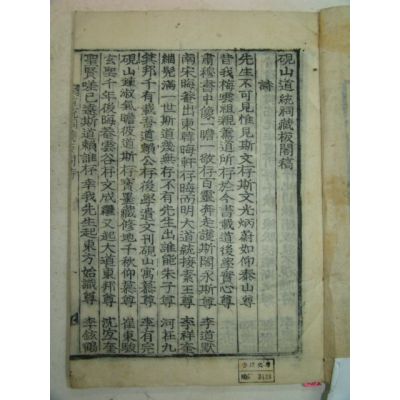 硯山道統祠藏板閣稿
詩
先生不可見惟見斯文存斯文光炳蔚如仰泰山尊
昔我梅雲祖親道所存於今書載道後學實心尊
肅穆書中像一瞻一敬存百靈奔走護斯閣永斯尊 李道默
南宋晦菴出東韓晦軒存晦兩明大道統接素王尊 李祥奎
緇髡滿一世斯道幾無存不有先生出誰能朱子尊 河在九
箕邦千有載賴公存後學遺文刊硯山寓慕尊 李有完
硯山鍾淑氣瞻彼道斯存寶墨藏修地千秋仰慕尊 崔東駿
玄聖千年後晦菴雲谷存文成繼又起大道東邦尊 沈宜奎
聖賢嗟已遠斯道賴誰存幸我先生起東方始識尊 李鉉